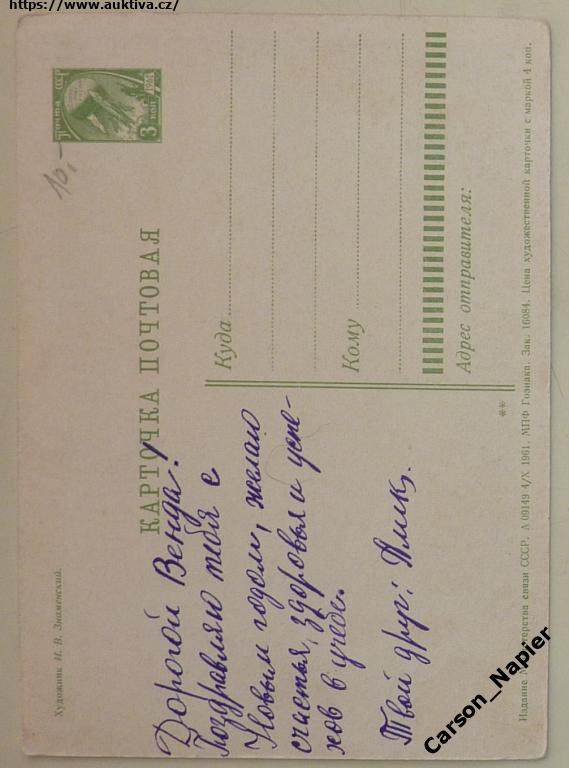 https://www.auktiva.cz/
Почта СССР
1961
3 коп
10,-
КАРТОЧКА ПОЧТОВАЯ
Художник И. В. Знаменский.
Дорогой Венда!
Поздравляю тебя с
Новым годом, желаю
счастья, здоровья и успе-
хов в учебе.
Твой друг: Алик.
Куда
Кому
Адрес отправителя:
**
Издание Министерства связи СССР. А 09149 4/X 1961. МПФ Гознака. Зак. 16084. Цена художественной карточки с маркой 4 коп.
Carson_Napier